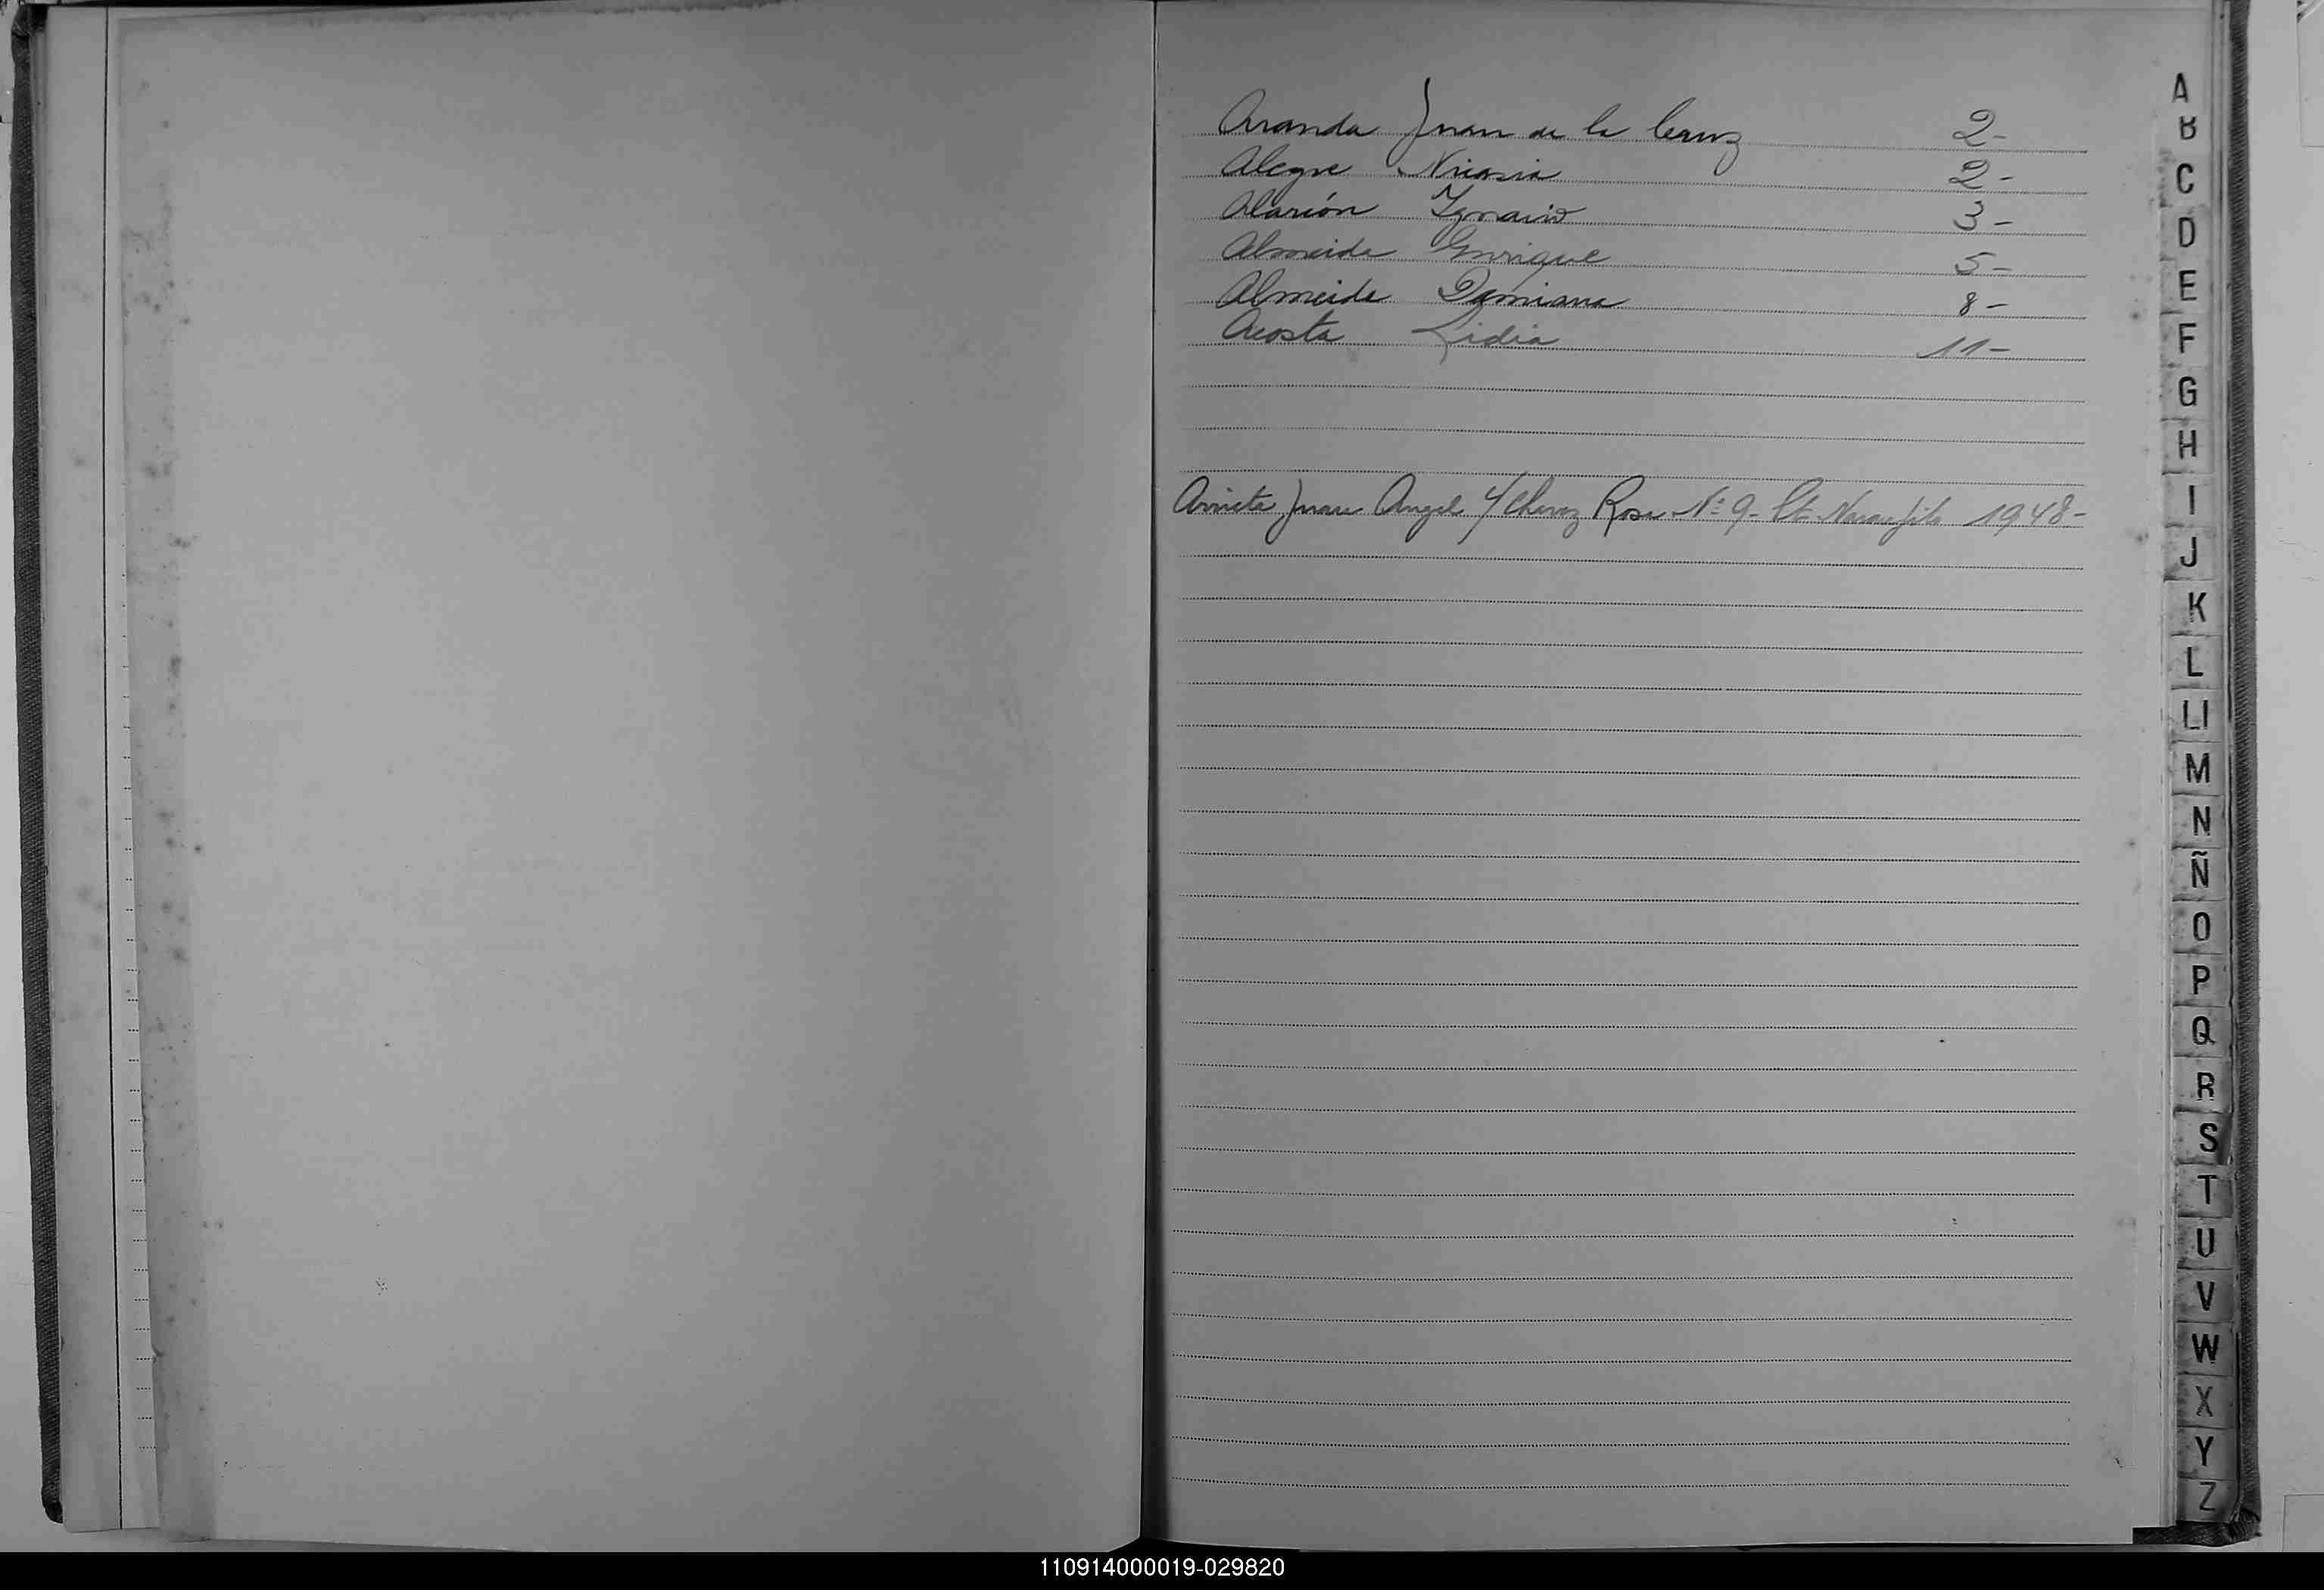 Aranda Juan de la Cruz 2-
Alegre Nicasia 2-
Alarcón Ignacio 3-
Almeida Enrique 5-
Almeida Damiana 8-
Acosta Lidia 11-
Arrieta Juan Angel y Chavez Rosa Nº 9- Ct. Naranjito 1948-
A
B
C
D
E
F
G
H
I
J
K
L
Ll
M
N
Ñ
O
P
Q
R
S
T
U
V
W
X
Y
Z
110914000019-029820